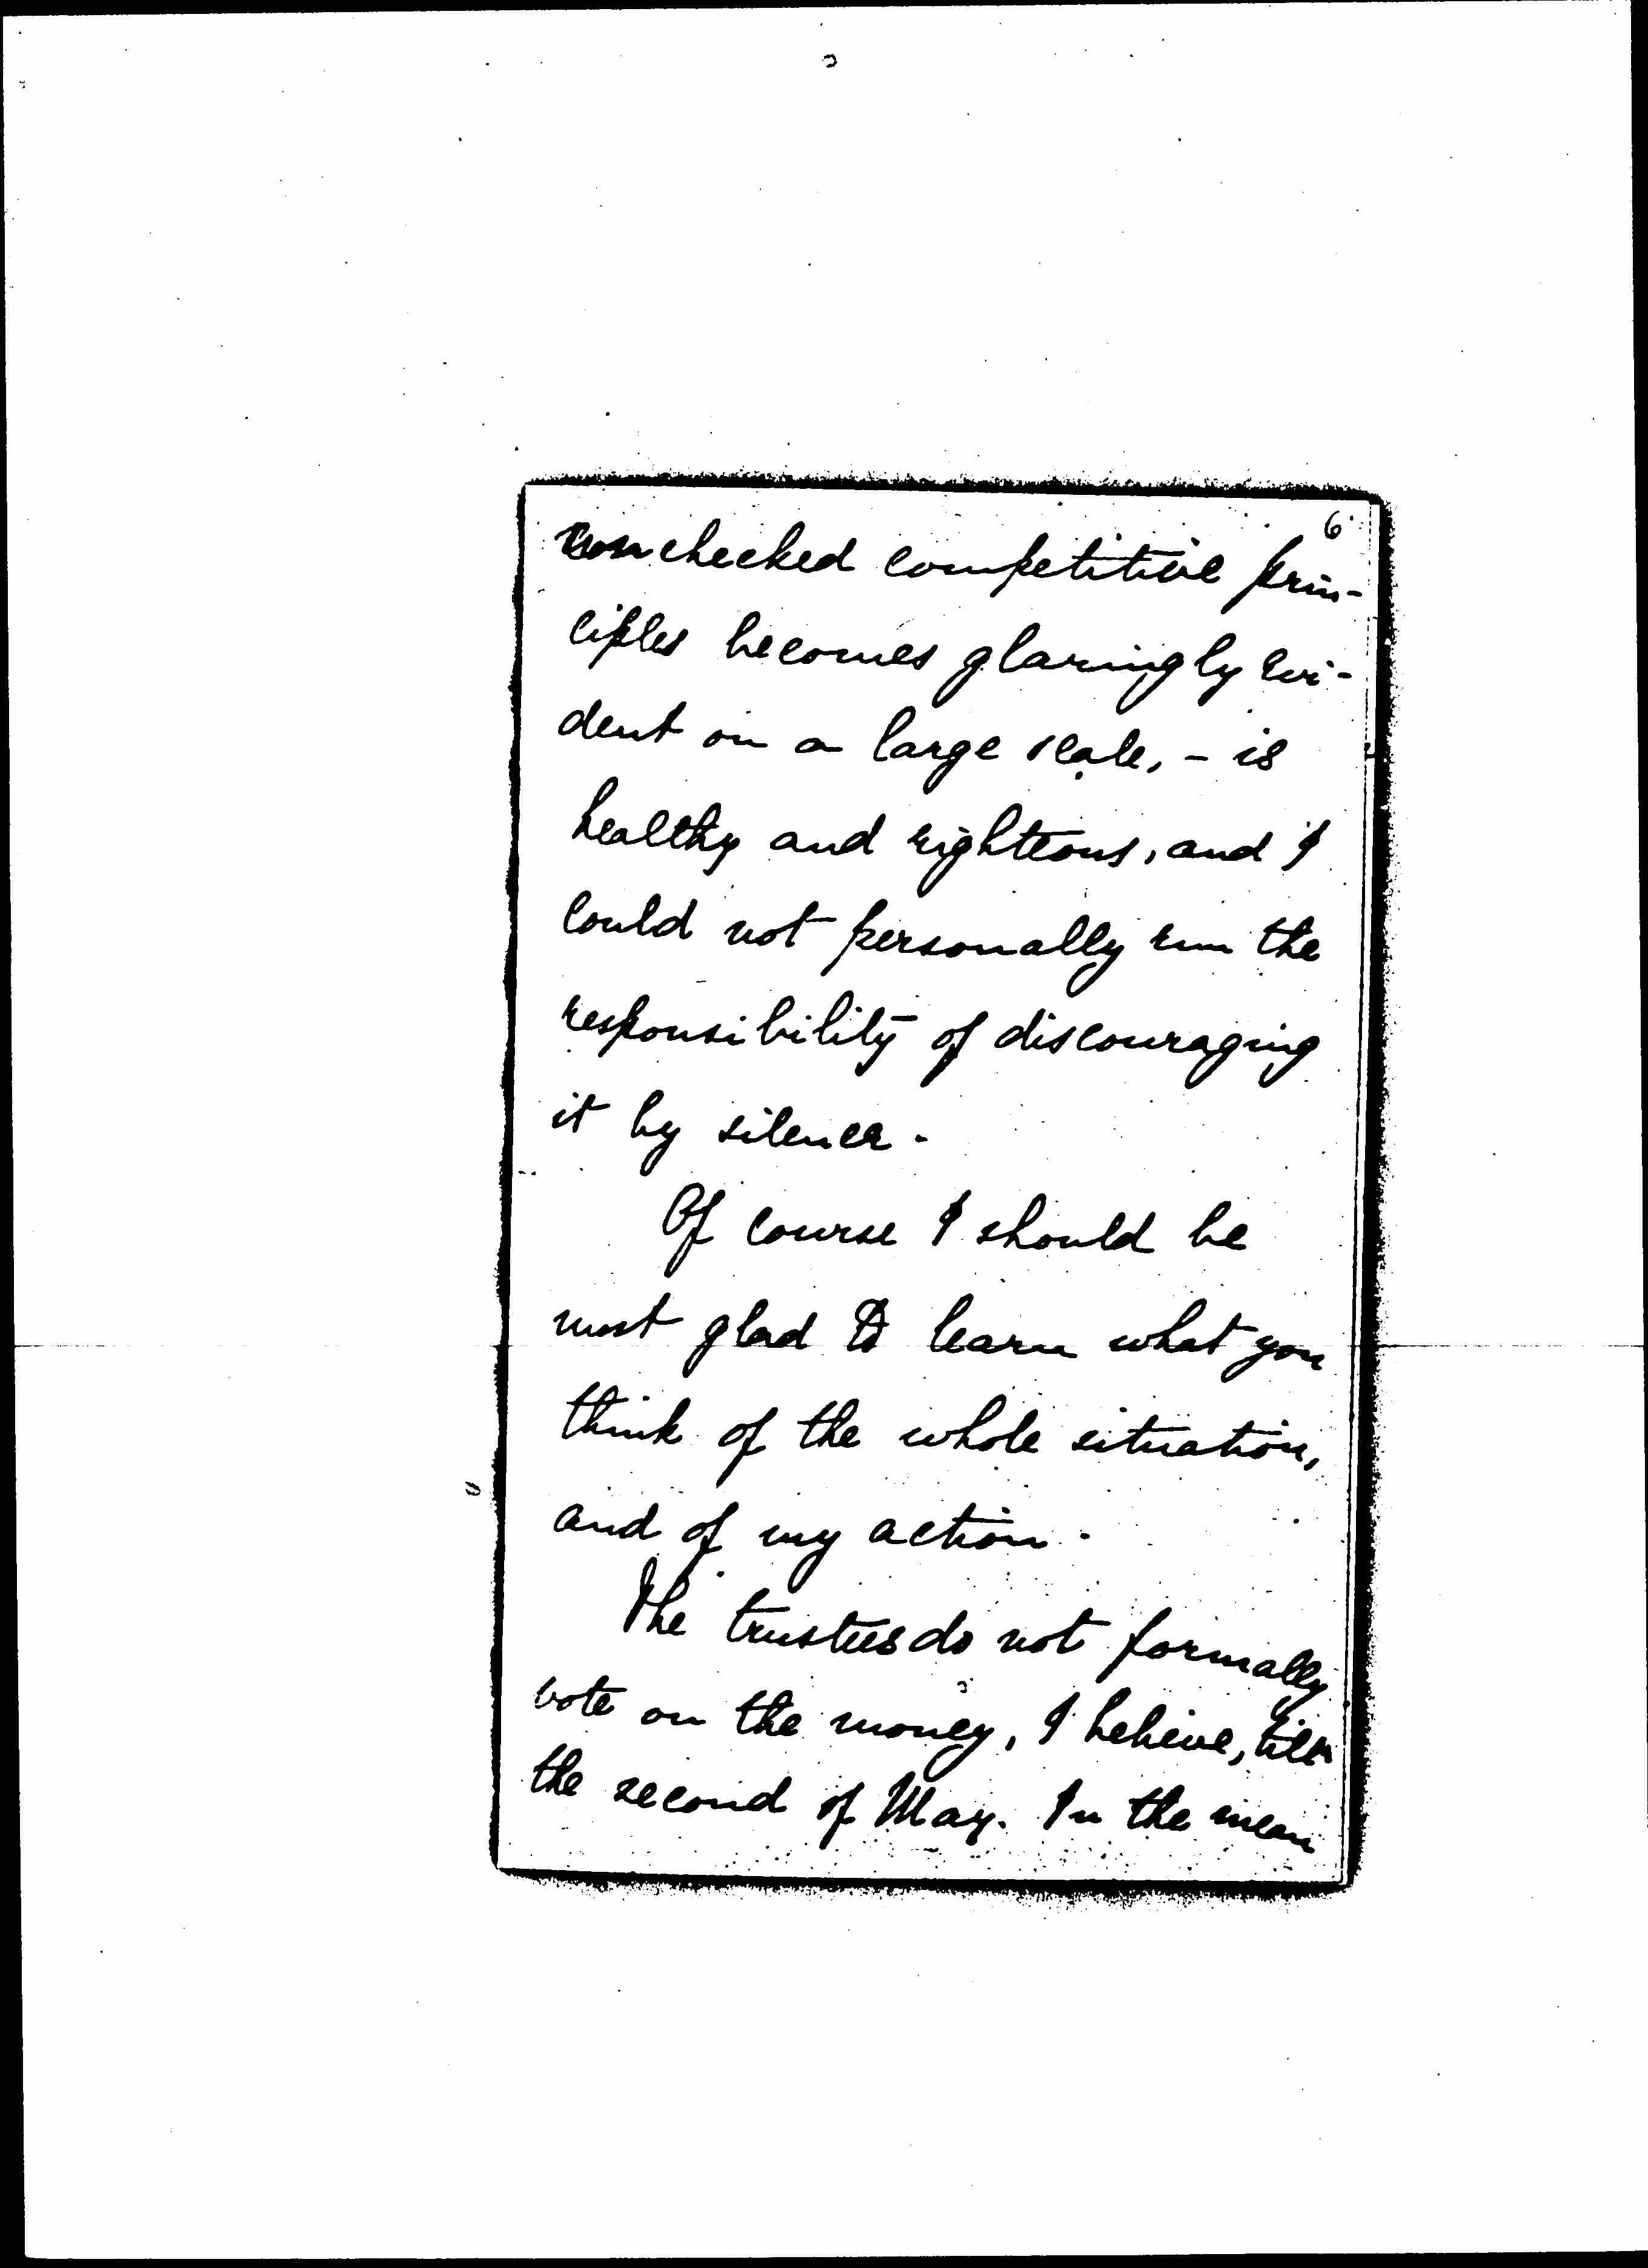 6
unchecked competitive prin-
ciples becomes glaringly evi-
dent on a large scale, - is
healthy and righteous, and I
could not personally run the
responsibility of discouraging
it by silence.
Of course I should be
most glad to learn what you
think of the whole situation,
and of my action.
The trustees do not formally
vote on the money, I believe, till
the second of May. In the mean